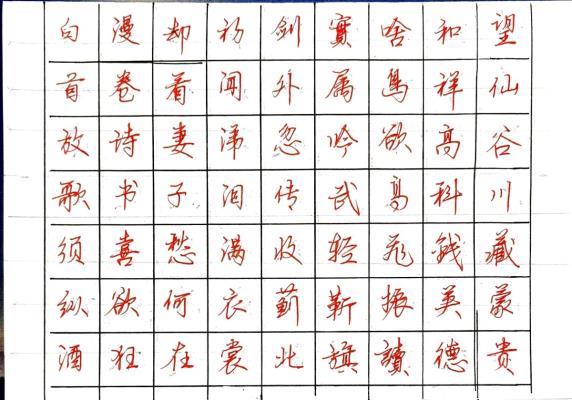 望仙谷川藏蒙贵
和祥高科戰英德
啥鳥欲高飛振讀
實属吟武轻靳旗
剑外忽传收蓟北
初闻涕泪满衣裳
却看妻子愁何在
漫卷诗书喜欲狂
白首放歌须纵酒